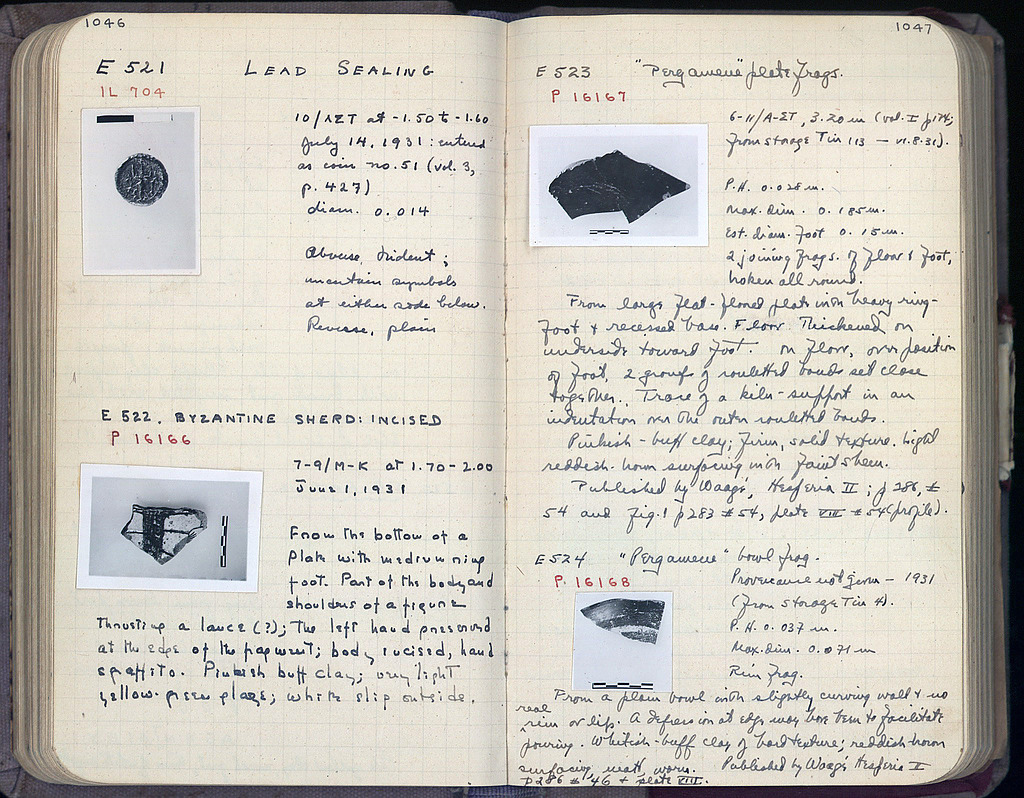 1046
E 521 LEAD SEALING
IL 704
10/ΛΣΤ at -1.50 to -1.60
July 14, 1931: entered
as coin no. 51 (vol. 3,
p. 427)
diam. 0.014
Obverse, trident;
uncertain symbols
at either side below.
Reverse, plain
E 522. BYZANTINE SHERD: INCISED
P 16166
7-9/M-K at 1.70-2.00
June 1, 1931
From the bottom of a
plate with medium ring
foot. Part of the body and
shoulders of a figure
thrusting a lance (?); the left hand preserved
at the edge of the fragment; body incised, hand
sgraffito. Pinkish buff clay; very light
yellow-green glaze; white slip outside.
1047
E 523 "Pergamene" plate frags.
P 16167
6-11/A-ΣΤ, 3.20 m (vol. I p 174;
from storage Tin 113 — VI.8.31).
P.H. 0.028 m.
Max. dim. 0.185 m.
Est. diam. foot 0.15 m.
2 joining frags. of floor & foot,
broken all round.
From large flat-floored plate with heavy ring-
foot & recessed base. Floor thickened on
underside toward foot. On floor, over position
of foot, 2 groups of rouletted bands set close
together. Trace of a kiln-support in an
indentation over the outer rouletted bands.
Pinkish-buff clay; firm, solid texture. Light
reddish-brown surfacing with faint sheen.
Published by Waagé, Hesperia II; p 286, #
54 and fig. 1 p 283 #54, plate VIII #54 (profile).
E 524 "Pergamene" bowl frag.
P 16168
Provenance not given - 1931
(from storage Tin 4).
P.H. 0.037 m.
Max. dim. 0.071 m
Rim frag.
From a plain bowl with slightly curving wall & no
real
rim or lip. A depression at edge may have been to facilitate
pouring. Whitish-buff clay of hard texture; reddish-brown
surfacing, matt, worn. Published by Waagé Hesperia II
p 286 # 46 & plate VIII.